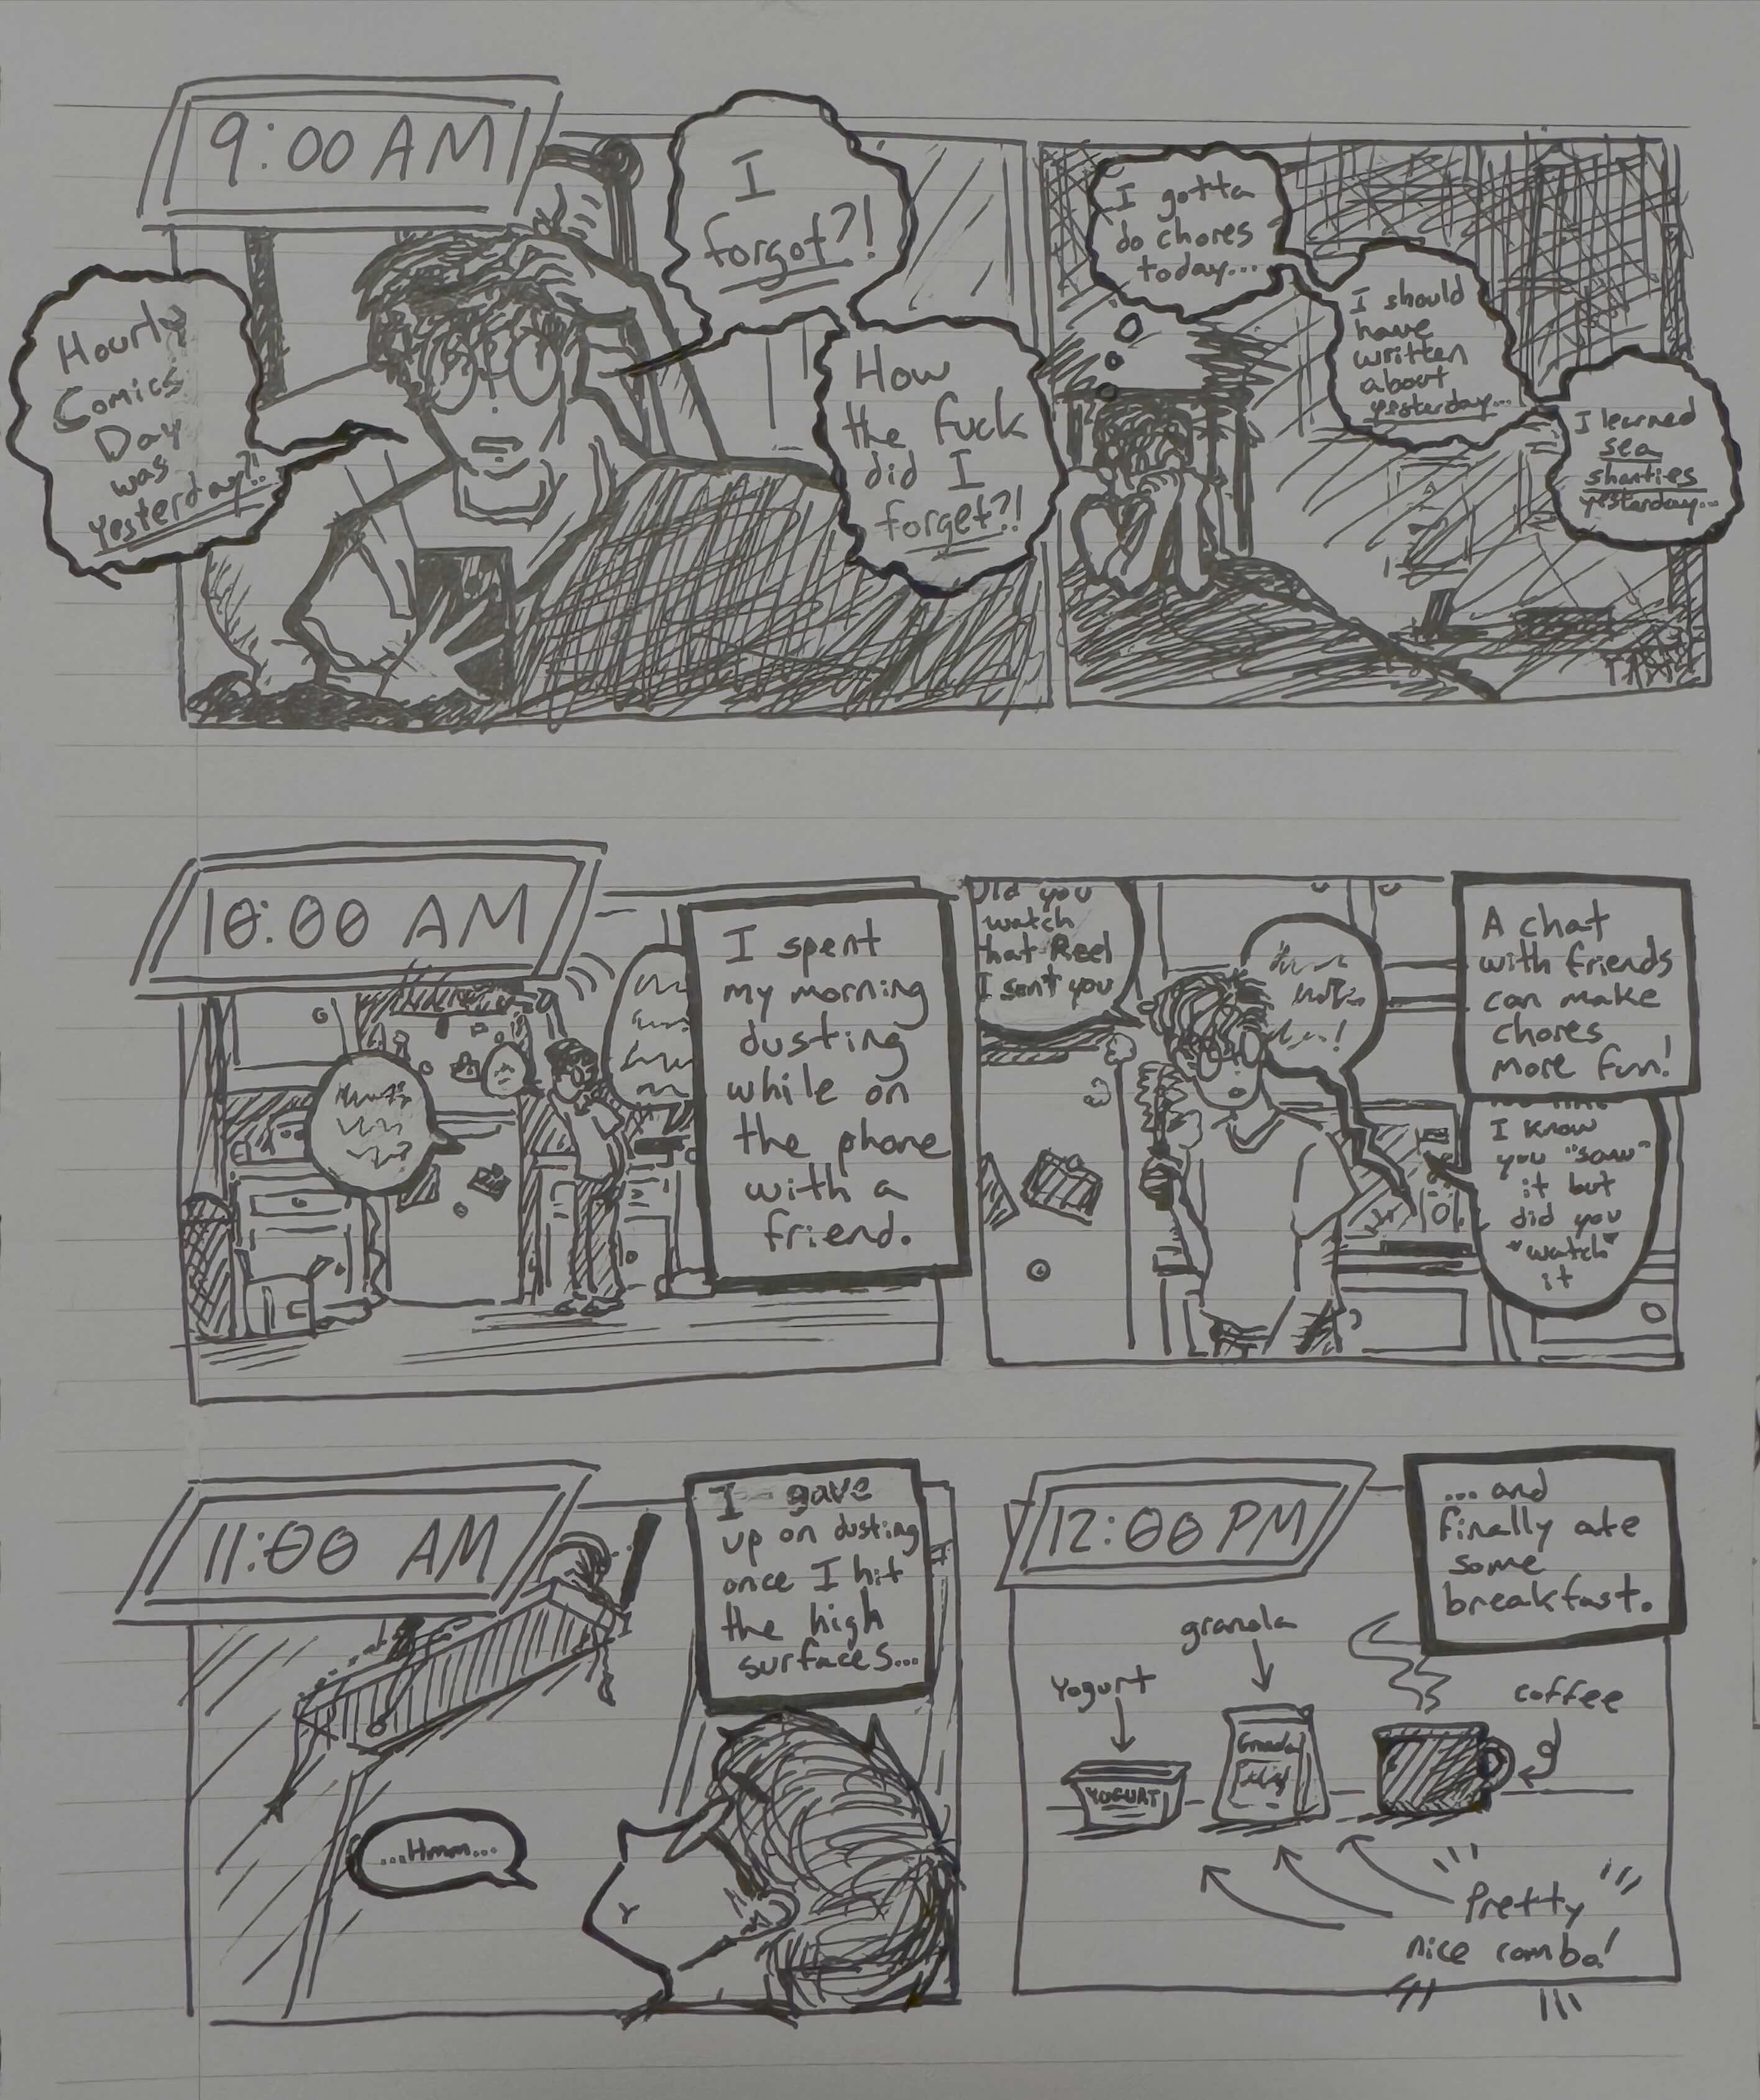 9:00 AM
Hourly
Comics
Day
was
yesterday?!
I
forgot?!
How
the fuck
did I
forget?!
I gotta
do chores
today...
I should
have
written
about
yesterday...
I learned
sea
shanties
yesterday...
10:00 AM
I spent
my morning
dusting
while on
the phone
with a
friend.
Did you
watch
that Reel
I sent you
A chat
with friends
can make
chores
more fun!
I know
you "saw"
it but
did you
"watch"
it
11:00 AM
I gave
up on dusting
once I hit
the high
surfaces...
...Hmm...
12:00 PM
...and
finally ate
some
breakfast.
granola
Yogurt
coffee
YOGURT
Granola
Pretty
nice combo!